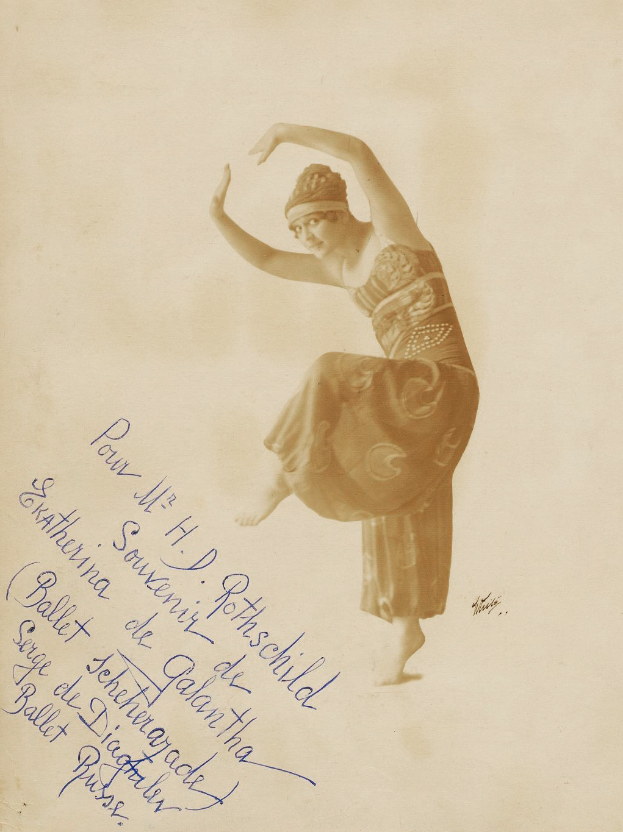 Pour Mr H. D. Rothschild
Souvenir de
Ekatherina de Galantha
(Ballet Scheherazade)
Serge de Diaghilev
Ballet Russe.